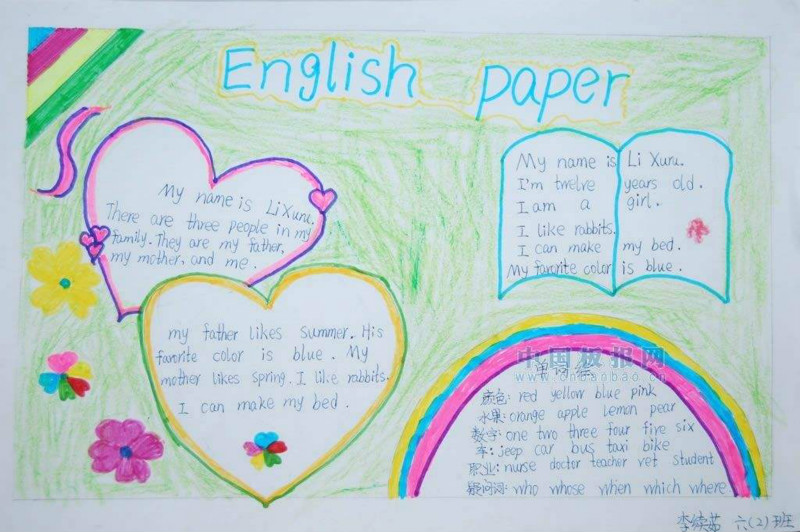 English paper
My name is LiXuru.
There are three people in my
family. They are my father,
my mother, and me.
my father likes summer. His
favorite color is blue. My
mother likes spring. I like rabbits.
I can make my bed.
My name is Li Xuru.
I'm twelve years old.
I am a girl.
I like rabbits.
I can make my bed.
My favorite color is blue.
中国板报网
www.cnbaobao.cn
颜色: red yellow blue pink
水果: orange apple lemon pear
数字: one two three four five six
车: jeep car bus taxi bike
职业: nurse doctor teacher vet student
疑问词: who whose when which where
六(2)班